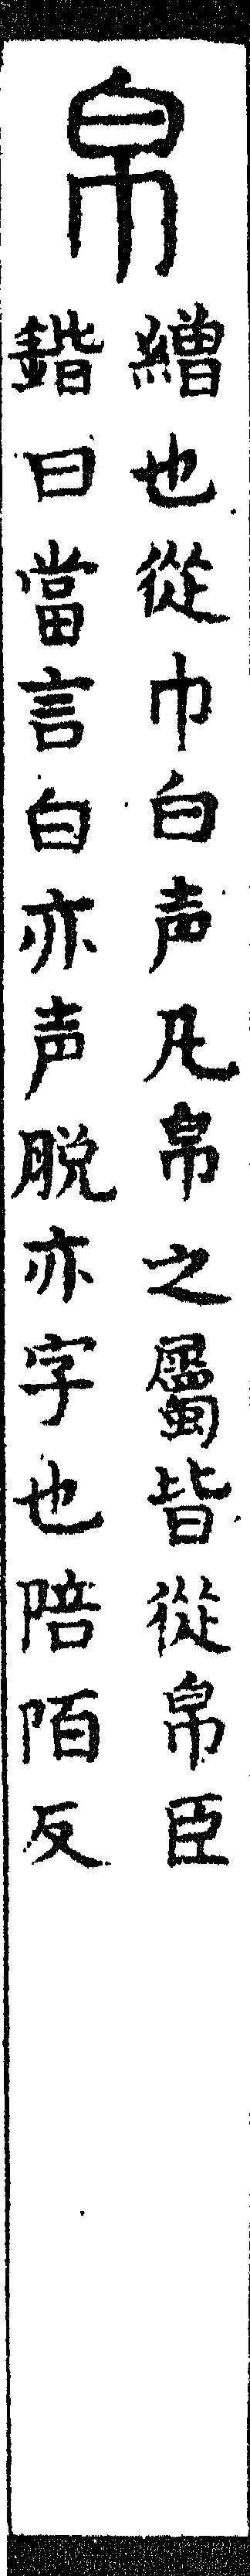 帛
繒也從巾白声凡帛之屬皆從帛臣
鍇曰當言白亦声脱亦字也陪陌反